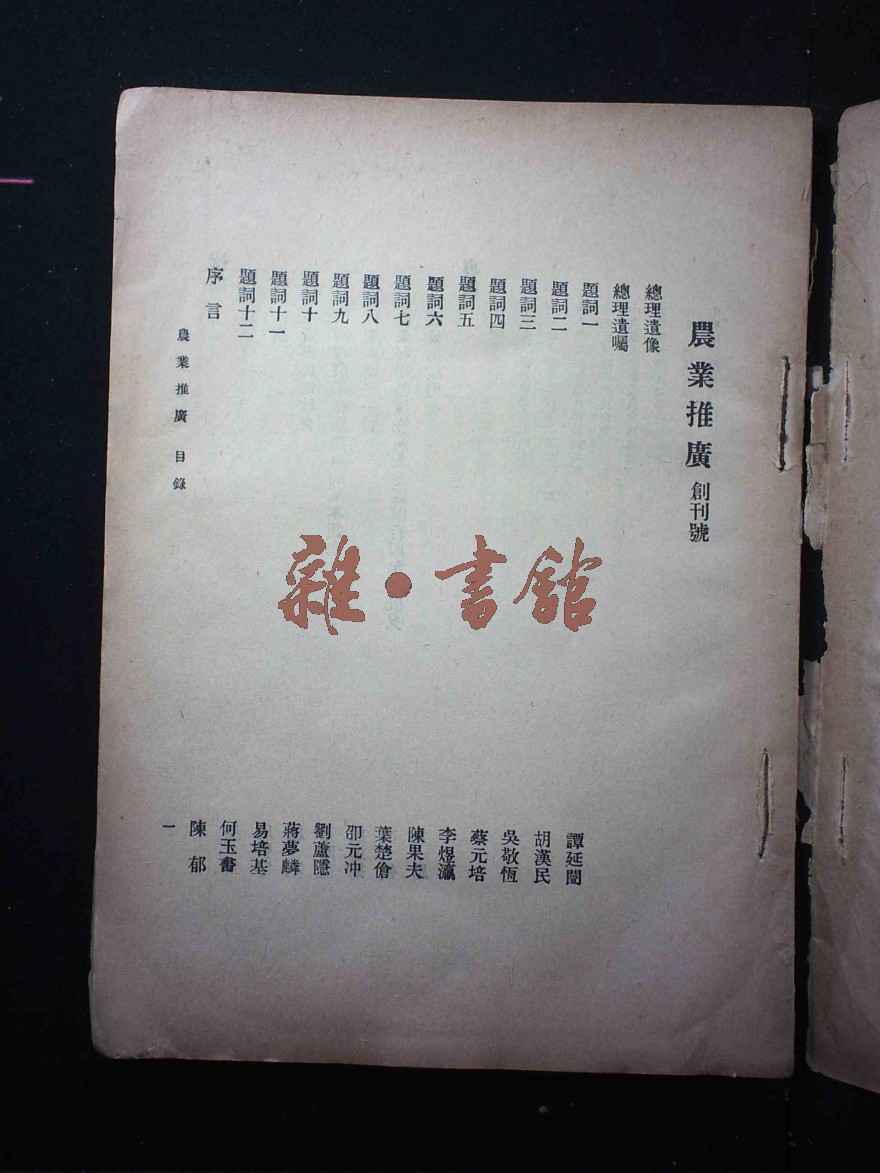 農業推廣 創刊號
總理遺像
總理遺囑
題詞一 譚延闓
題詞二 胡漢民
題詞三 吳敬恆
題詞四 蔡元培
題詞五 李煜瀛
題詞六 陳果夫
題詞七 葉楚傖
題詞八 邵元冲
題詞九 劉蘆隱
題詞十 蔣夢麟
題詞十一 易培基
題詞十二 何玉書
序言 陳郁
農業推廣 目錄 一
雜·書館